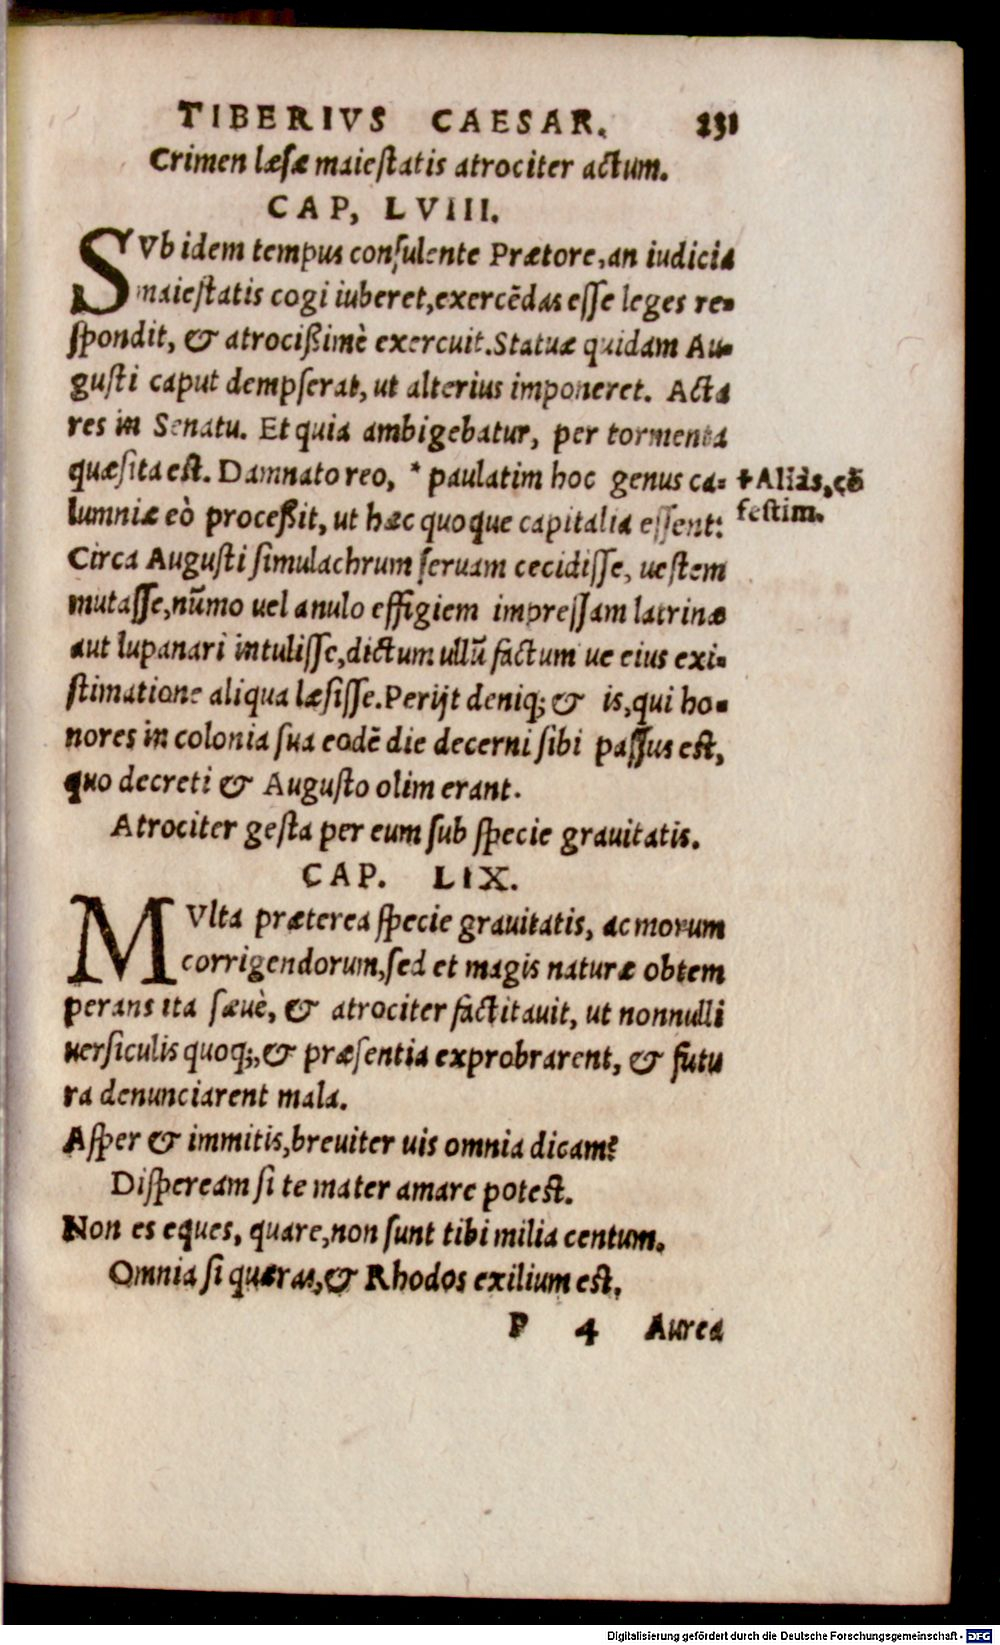 TIBERIVS CAESAR. 231
Crimen læsæ maiestatis atrociter actum.
CAP, LVIII.
SVb idem tempus consulente Prætore, an iudicia
maiestatis cogi iuberet, exercēdas esse leges re-
spondit, & atrocißimè exercuit. Statuæ quidam Au-
gusti caput dempserat, ut alterius imponeret. Acta
res in Senatu. Et quia ambigebatur, per tormenta
quæsita est. Damnato reo, * paulatim hoc genus ca-
lumniæ eò proceßit, ut hæc quoque capitalia essent:
Circa Augusti simulachrum seruam cecidisse, uestem
mutasse, nūmo uel anulo effigiem impressam latrinæ
aut lupanari intulisse, dictum ullū factum ue eius exi-
stimatione aliqua læsisse. Perijt deniq; & is, qui ho-
nores in colonia sua eodē die decerni sibi passus est,
quo decreti & Augusto olim erant.
Atrociter gesta per eum sub specie grauitatis.
CAP. LIX.
MVlta præterea specie grauitatis, ac morum
corrigendorum, sed et magis naturæ obtem
perans ita sæuè, & atrociter factitauit, ut nonnulli
uersiculis quoq;, & præsentia exprobrarent, & futu
ra denunciarent mala.
Asper & immitis, breuiter uis omnia dicam?
Dispeream si te mater amare potest.
Non es eques, quare, non sunt tibi milia centum.
Omnia si quæras, & Rhodos exilium est.
P 4 Aurea
✝Aliàs, cō
festim.
Digitalisierung gefördert durch die Deutsche Forschungsgemeinschaft - DFG